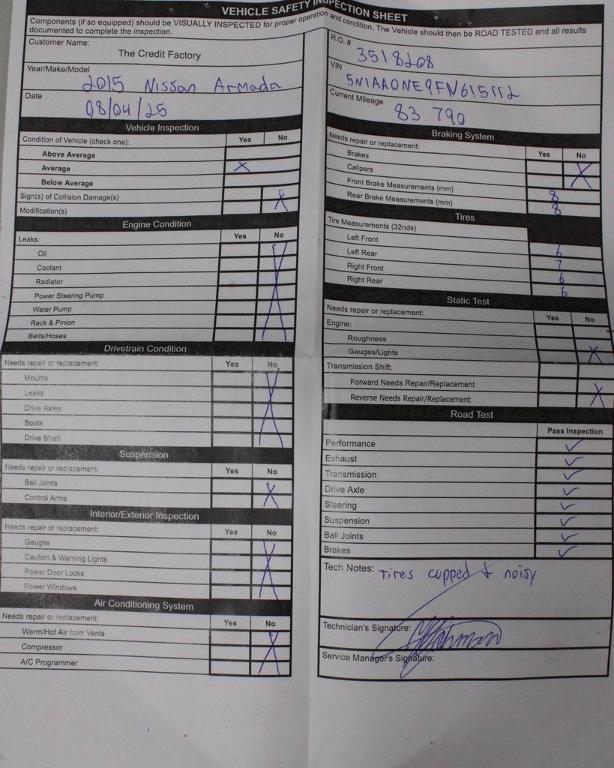 VEHICLE SAFETY INSPECTION SHEET
Components (if so equipped) should be VISUALLY INSPECTED for proper operation and condition. The Vehicle should then be ROAD TESTED and all results
documented to complete the inspection.
Customer Name:
The Credit Factory
Year/Make/Model
2015 Nissan Armada
Date
08/04/25
Vehicle Inspection
Condition of Vehicle (check one): Yes No
Above Average
Average X
Below Average
Sign(s) of Collision Damage(s) X
Modification(s)
Engine Condition
Leaks: Yes No
Oil
Coolant
Radiator
Power Steering Pump
Water Pump
Rack & Pinion
Belts/Hoses
Drivetrain Condition
Needs repair or replacement: Yes No
Mounts
Leaks
Drive Axles
Boots
Drive Shaft
Suspension
Needs repair or replacement: Yes No
Ball Joints
Control Arms
Interior/Exterior Inspection
Needs repair or replacement: Yes No
Gauges
Caution & Warning Lights
Power Door Locks
Power Windows
Air Conditioning System
Needs repair or replacement: Yes No
Warm/Hot Air from Vents
Compressor
A/C Programmer
R.O. #
3518208
VIN
5N1AA0NE9FN615112
Current Mileage
83 790
Braking System
Needs repair or replacement: Yes No
Brakes
Calipers
Front Brake Measurements (mm) 8
Rear Brake Measurements (mm) 8
Tires
Tire Measurements (32nds)
Left Front 6
Left Rear 7
Right Front 6
Right Rear 6
Static Test
Needs repair or replacement: Yes No
Engine:
Roughness
Gauges/Lights
Transmission Shift:
Forward Needs Repair/Replacement
Reverse Needs Repair/Replacement
Road Test
Pass Inspection
Performance ✓
Exhaust ✓
Transmission ✓
Drive Axle ✓
Steering ✓
Suspension ✓
Ball Joints ✓
Brakes ✓
Tech Notes: Tires cupped & noisy
Technician's Signature:
Service Manager's Signature: